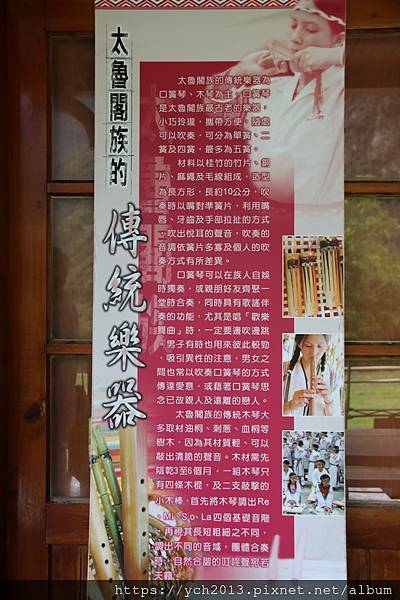 太魯閣族的
傳統樂器
太魯閣族的傳統樂器為
口簧琴、木琴為主。口簧琴
是太魯閣族最古老的樂器，
小巧玲瓏，攜帶方便，隨處
可以吹奏，可分為單簧、二
簧及四簧，最多為五簧。
材料以桂竹的竹片、銅
片、麻繩及毛線組成，造型
為長方形，長約10公分，吹
奏時以嘴對準簧片，利用嘴
唇、牙齒及手部拉扯的方式
吹出悅耳的聲音，吹奏的
音調依簧片多寡及個人的吹
奏方式有所差異。
口簧琴可以在族人自娛
時獨奏，或親朋好友齊聚一
堂時合奏，同時具有歌謠伴
奏的功能，尤其是唱「歡樂
舞曲」時，一定要邊吹邊跳
男子有時也用來彼此較勁
，吸引異性的注意，男女之
間也常以吹奏口簧琴的方式
傳達愛意，或藉著口簧琴思
念已故親人及遠離的戀人。
太魯閣族的傳統木琴大
多取材油桐、刺蔥、血桐等
樹木，因為其材質輕、可以
敲出清脆的聲音。木材需先
陰乾3至6個月，一組木琴只
有四條木棍，及二支敲擊的
小木棒，首先將木琴調出Re
、Mi、So、La四個基礎音階
，再視其長短粗細之不同，
調出不同的音域，團體合奏
時，自然合諧的叮咚聲宛若
天籟。
https://ych2013.pixnet.net/album